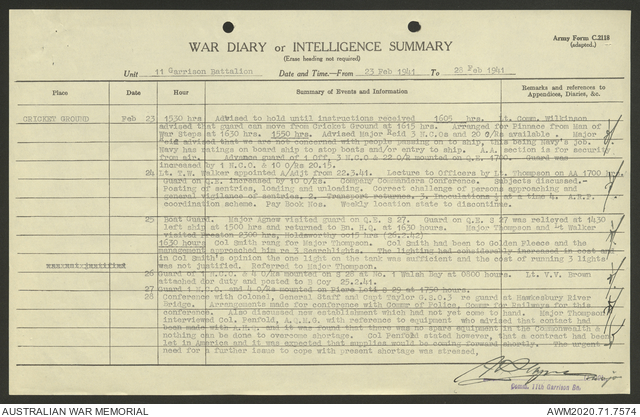 Army Form C.2118
(adapted.)
WAR DIARY or INTELLIGENCE SUMMARY
(Erase heading not required)
Unit 11 Garrison Battalion Date and Time.—From 23 Feb 1941 To 28 Feb 1941
Place Date Hour Summary of Events and Information Remarks and references to Appendices, Diaries, &c.
CRICKET GROUND Feb 23 1530 hrs Advised to hold until instructions received 1605 hrs. Lt. Comm. Wilkinson
advised that guard can move from Cricket Ground at 1615 hrs. Arranged for Pinnace from Man of
War Steps at 1630 hrs. 1550 hrs. Advised Major Reid 3 N.C.Os and 20 O/Rs available. Major
Reid advised that we are not concerned with people passing on to ship, this being Navy's job.
Navy has ratings on board ship to stop boats and/or entry to ship. A.A. section is for security
from air. Advance guard of 1 Off, 3 N.C.O & 22 O/R mounted on Q.E. 1700. Guard was
increased by 1 N.C.O. & 10 O/Rs 20.15.
24 Lt. T.W. Walker appointed A/Adjt from 22.3.41. Lecture to Officers by Lt. Thompson on AA 1700 hrs
Guard on Q.E. increased by 10 O/Rs. Company Commanders Conference. Subjects discussed.—
Posting of sentries, loading and unloading. Correct challenge of persons approaching and
general vigilance of sentries. 2. Transport returns. 3. Inoculations at a time 4. A.R.P.
coordination scheme. Pay Book Nos. Weekly location state to discontinue.
25 Boat Guard. Major Agnew visited guard on Q.E. & 27. Guard on Q.E. & 27 was relieved at 1430
left ship at 1500 hrs and returned to Bn. H.Q. at 1630 hrs. Major Thompson and Lt Walker
visited 2300 hrs, Holdsworthy 0015 hrs (26.2.41)
1630 hours Col Smith rang for Major Thompson. Col Smith had been to Golden Fleece and the
management approached him re 3 Searchlights. The lighting had considerably increased in cost
in Col Smith's opinion the one light on the tank was sufficient and the cost of running 3 lights
was not justified. Referred to Major Thompson.
was not justified
26 Guard of N.C.O. & O/Rs mounted on S 28 at No. 1 Walsh Bay at 0800 hours. Lt. V.V. Brown
attached for duty and posted to B Coy 25.2.41.
27 Guard 1 N.C.O. and O/Rs mounted on Pier 8-29 at 1750 hours.
28 Conference with Colonel, General Staff and Capt Taylor G.S.O.3 re guard at Hawkesbury River
Bridge. Arrangements made for conference with Commr of Police, Commr for Railways for this
conference. Also discussed new establishment which had not yet come to hand. Major Thompson
interviewed Col. Penfold, A.Q.M.G. with reference to equipment who advised that contact had
been made with A.H.Q. and it was found that there was no spare equipment in the Commonwealth &
nothing can be done to overcome shortage. Col Penfold stated however, that a contract had been
let in America and it was expected that supplies would be coming forward shortly. The urgent
need for a further issue to cope with present shortage was stressed.
Major
Comm. 11th Garrison Bn.
AUSTRALIAN WAR MEMORIAL
AWM2020.71.7574